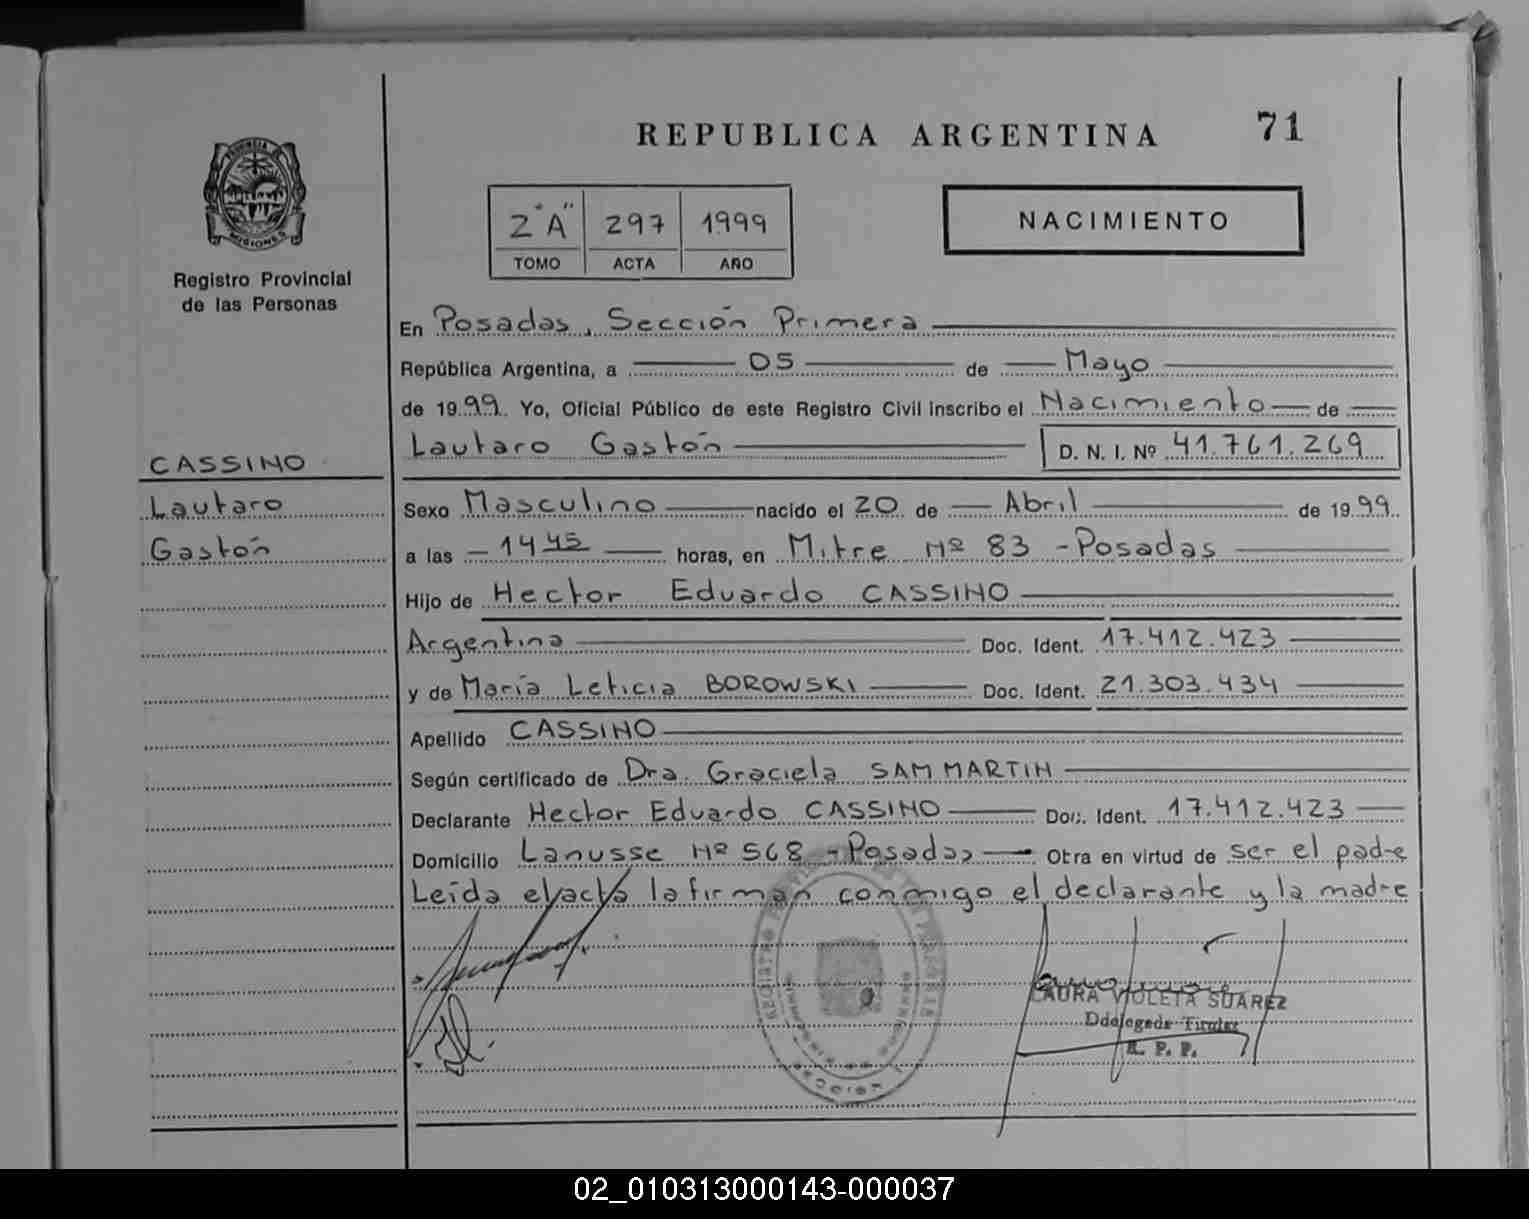 REPUBLICA ARGENTINA 71
PROVINCIA DE
MISIONES
Registro Provincial
de las Personas
2 "A" 297 1999
TOMO ACTA AÑO
NACIMIENTO
En Posadas, Sección Primera
República Argentina, a 05 de Mayo
de 1999. Yo, Oficial Público de este Registro Civil inscribo el Nacimiento de
Lautaro Gastón D. N. I. Nº 41.761.269
CASSINO
Lautaro
Gastón
Sexo Masculino nacido el 20 de Abril de 1999.
a las 14 45 horas, en Mitre Nº 83 - Posadas
Hijo de Hector Eduardo CASSINO
Argentina Doc. Ident. 17.412.423
y de María Leticia BOROWSKI Doc. Ident. 21.303.434
Apellido CASSINO
Según certificado de Dra. Graciela SAMMARTIN
Declarante Hector Eduardo CASSINO Doc. Ident. 17.412.423
Domicilio Lanusse Nº 568 - Posadas Obra en virtud de ser el padre
Leída el acta la firman conmigo el declarante y la madre
LAURA VIOLETA SUAREZ
Delegada Titular
R. P. P.
02_010313000143-000037